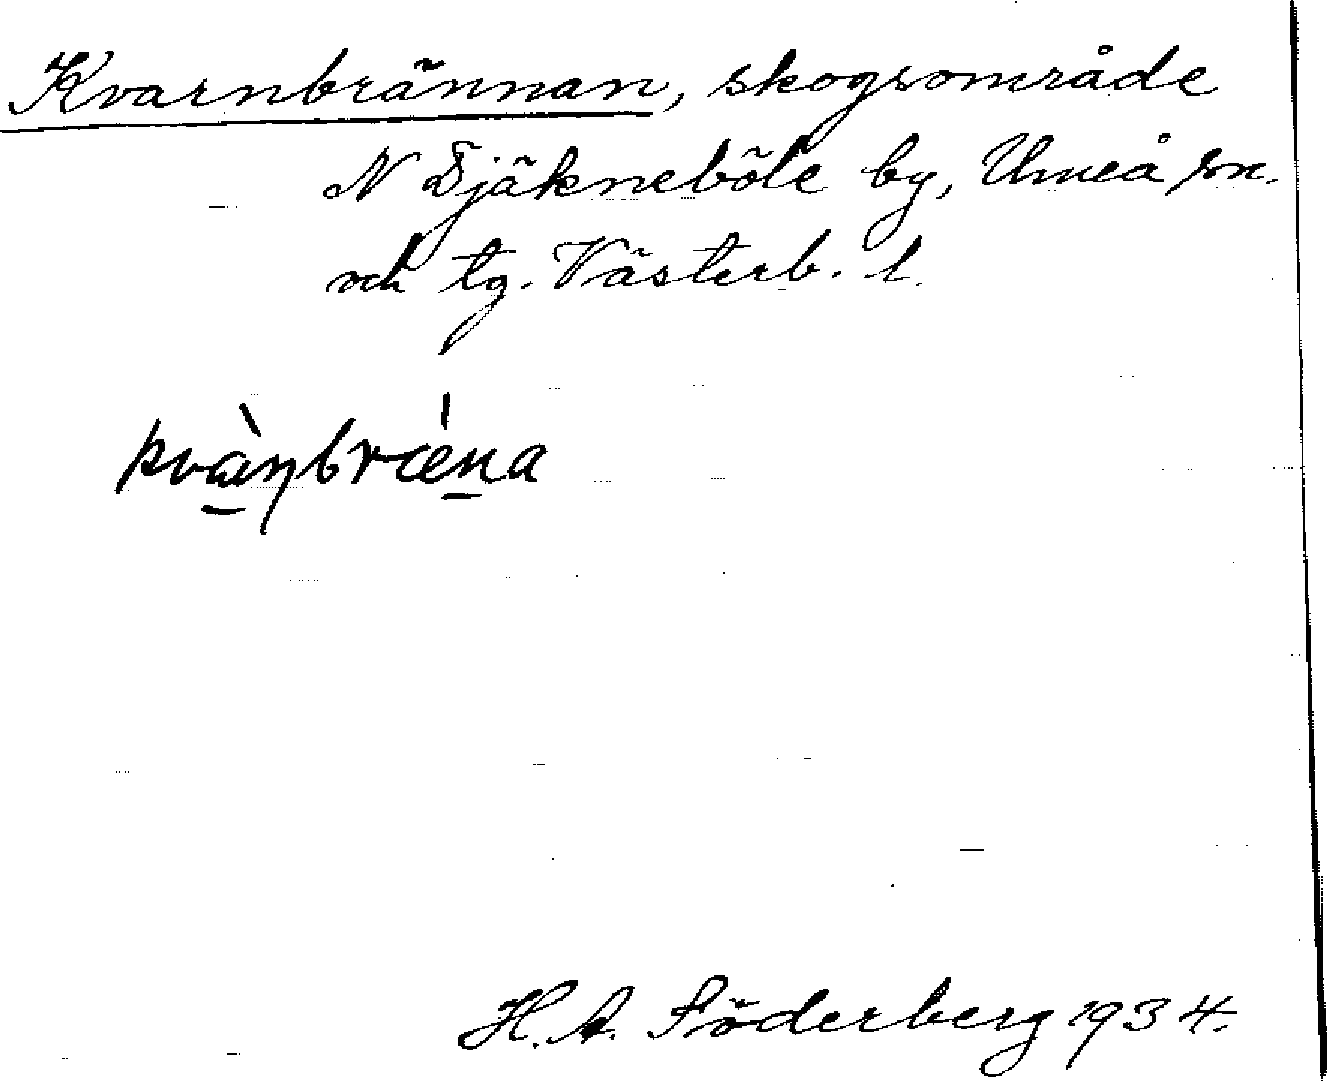 Kvarnbrännan, skogsområde
N Djäkneböle by, Umeå sn.
och tg. Västerb. l.
kvа̀ɳbrǽna
H. A. Söderberg 1934.